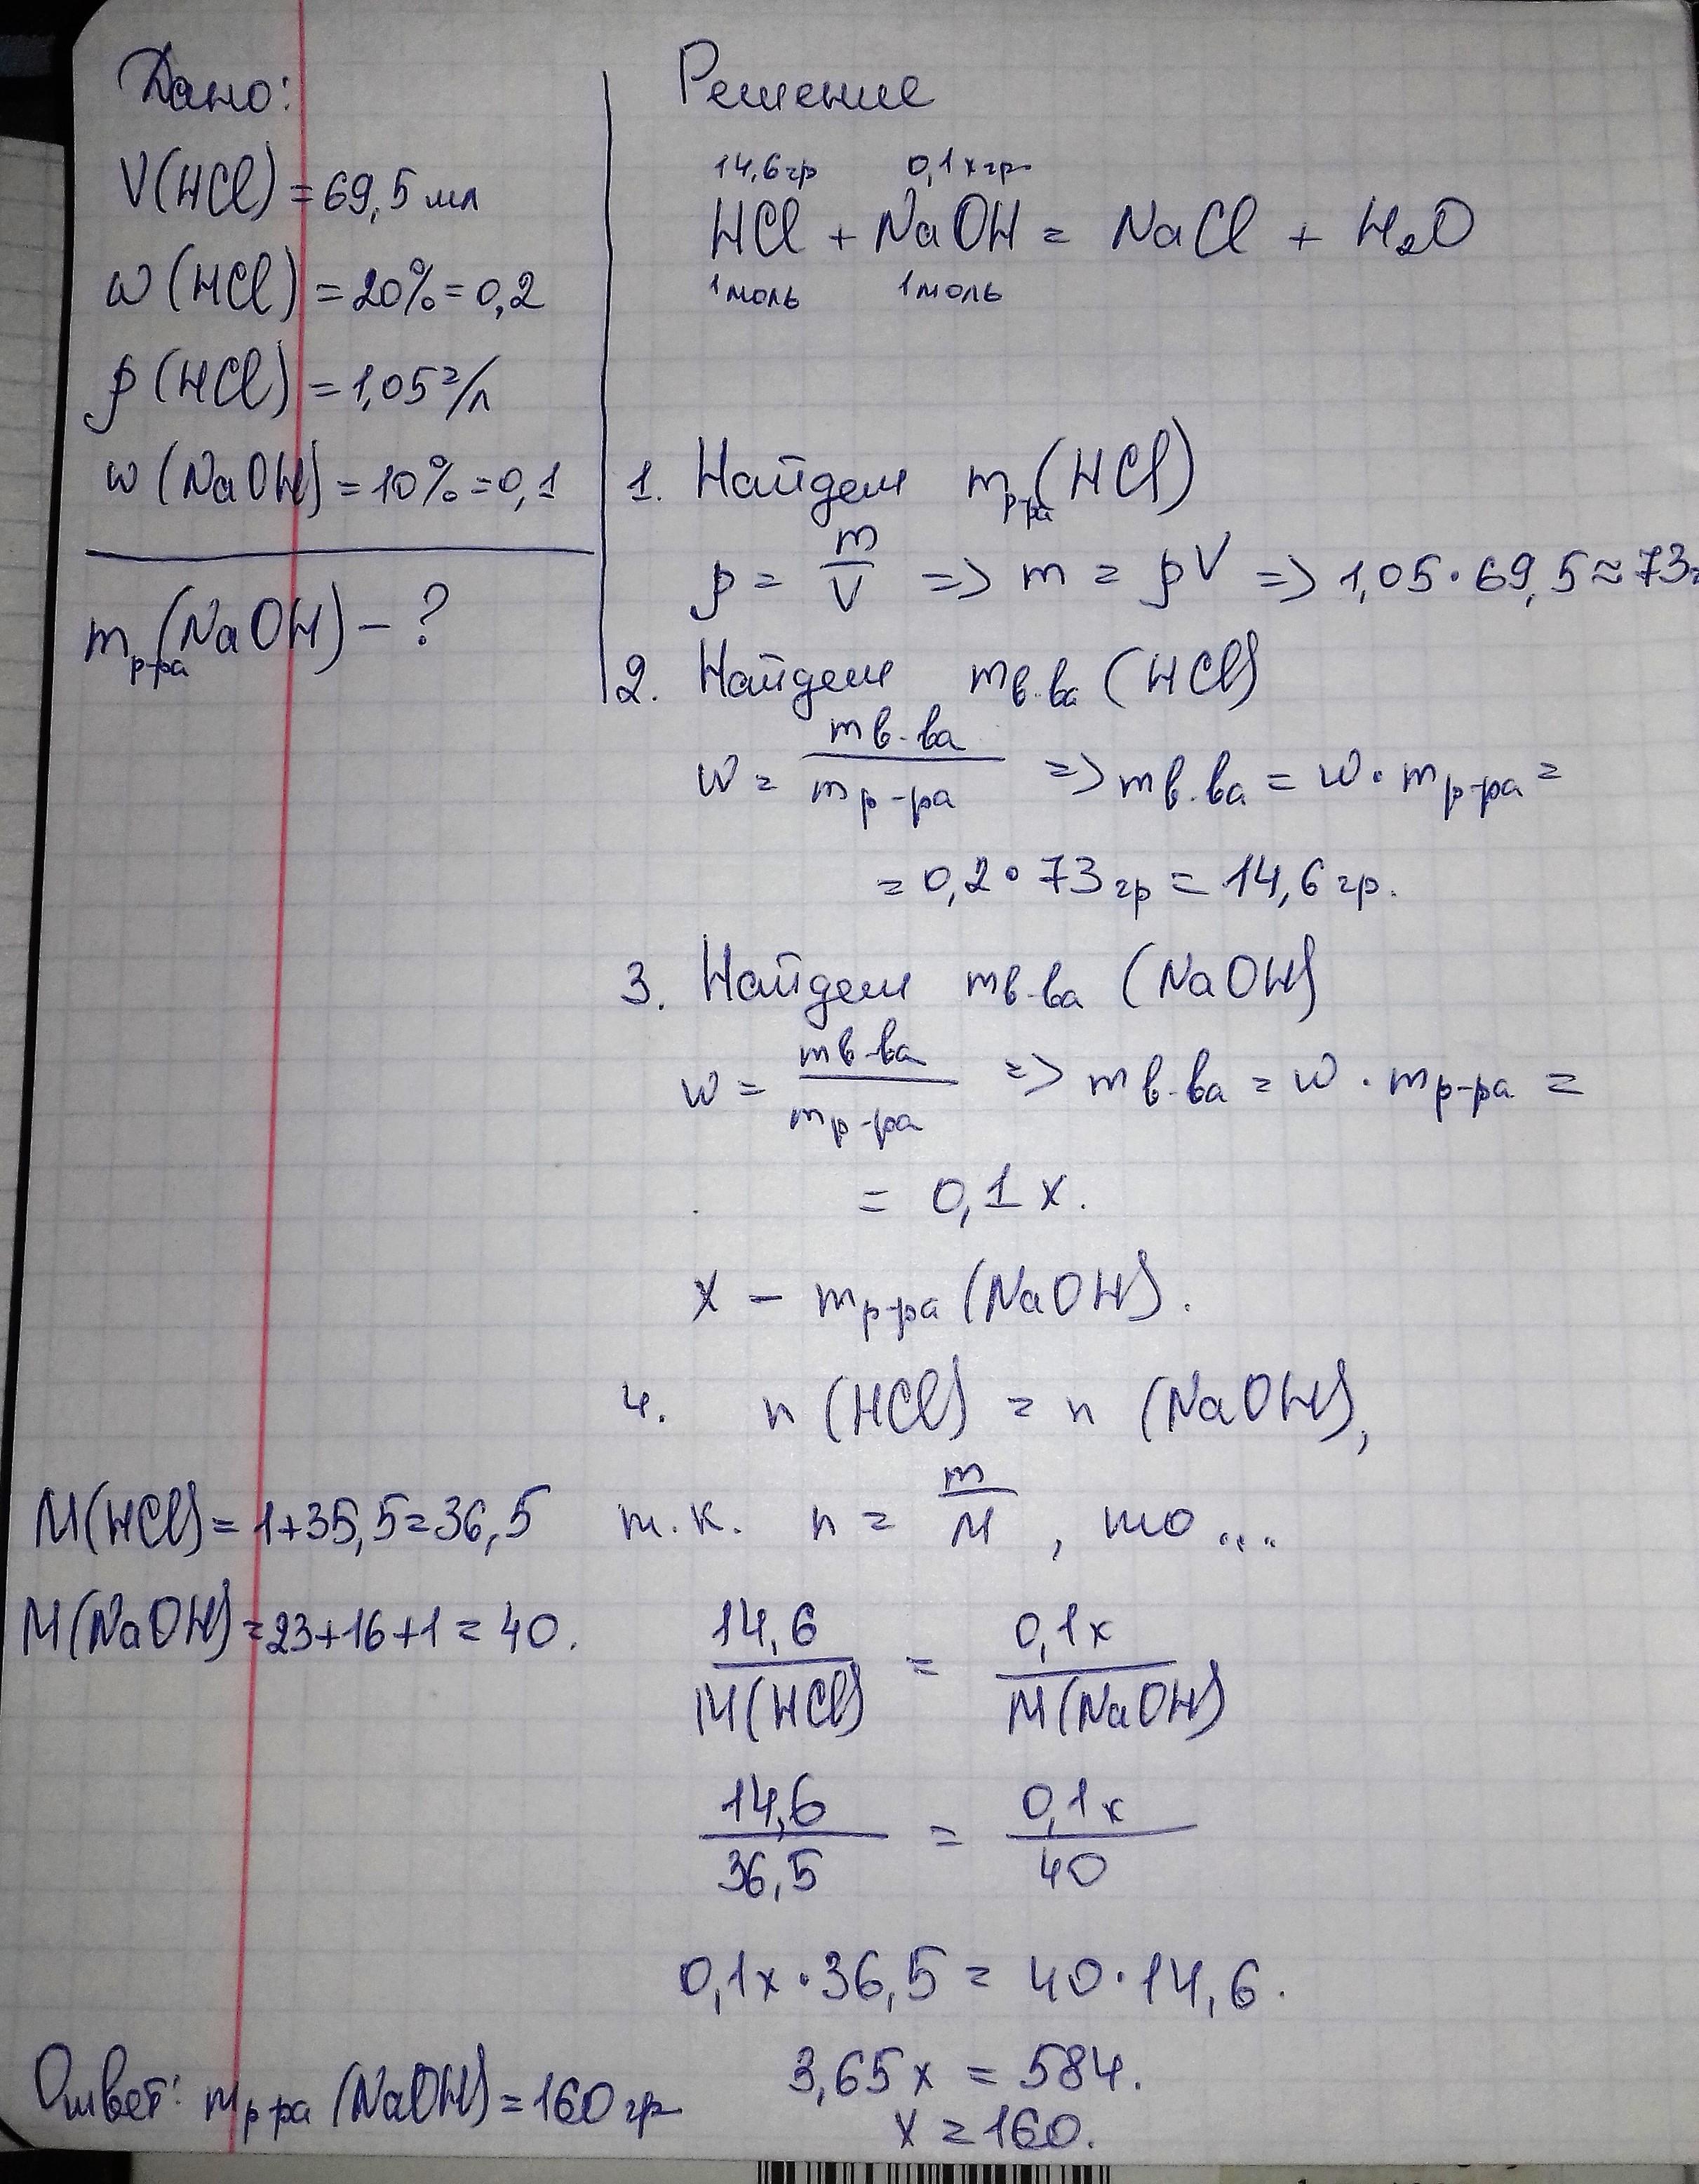 Дано:
V(HCl) = 69,5 мл
w(HCl) = 20% = 0,2
ρ(HCl) = 1,05 г/л
w(NaOH) = 10% = 0,1
m р-ра (NaOH) - ?
Решение
14,6 гр 0,1x гр
HCl + NaOH = NaCl + H₂O
1 моль 1 моль
1. Найдем m р-ра (HCl)
ρ = m/V => m = ρV => 1,05 · 69,5 ≈ 73г
2. Найдем m в-ва (HCl)
w = m в-ва / m р-ра => m в-ва = w · m р-ра =
= 0,2 · 73 гр = 14,6 гр.
3. Найдем m в-ва (NaOH)
w = m в-ва / m р-ра => m в-ва = w · m р-ра =
= 0,1 x.
x - m р-ра (NaOH).
4. n (HCl) = n (NaOH),
т.к. n = m/M, то ....
M(HCl) = 1+35,5 = 36,5
M(NaOH) = 23+16+1 = 40.
14,6 / M(HCl) = 0,1x / M(NaOH)
14,6 / 36,5 = 0,1x / 40
0,1x · 36,5 = 40 · 14,6.
3,65x = 584.
x = 160.
Ответ: m р-ра (NaOH) = 160 гр